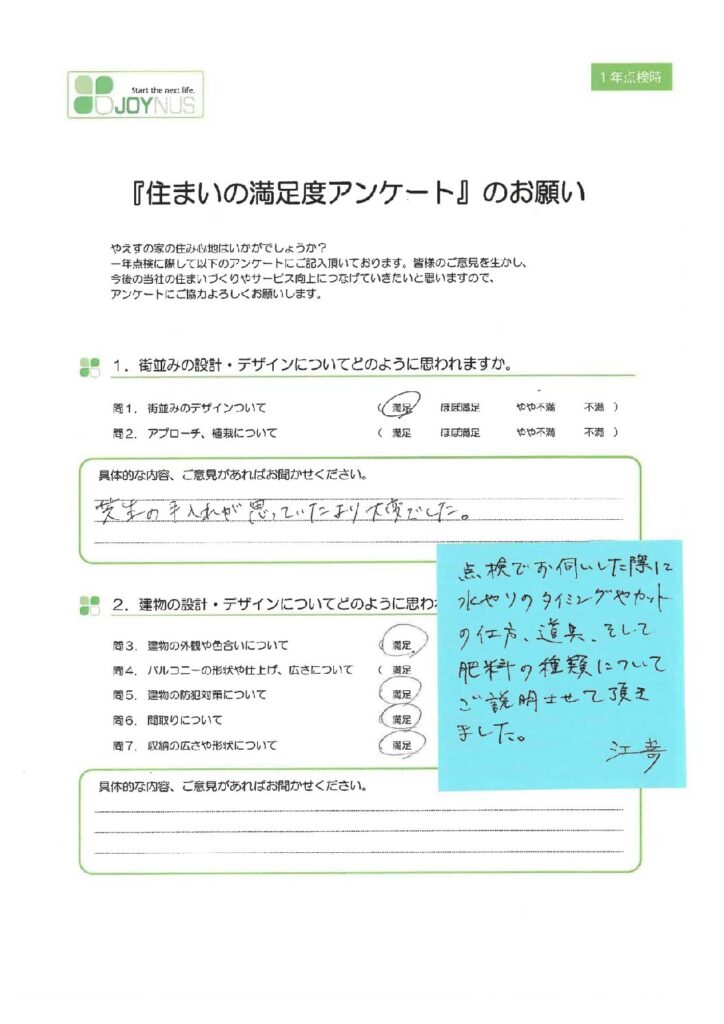 Start the next life.
JOYNUS
1年点検時
『住まいの満足度アンケート』のお願い
やえすの家の住み心地はいかがでしょうか?
一年点検に際して以下のアンケートにご記入頂いております。皆様のご意見を生かし、
今後の当社の住まいづくりやサービス向上につなげていきたいと思いますので、
アンケートにご協力よろしくお願いします。
1. 街並みの設計・デザインについてどのように思われますか。
問1. 街並みのデザインついて ( 満足 ほぼ満足 やや不満 不満 )
問2. アプローチ、植栽について ( 満足 ほぼ満足 やや不満 不満 )
具体的な内容、ご意見があればお聞かせください。
芝生の手入れが思っていたより大変でした。
2. 建物の設計・デザインについてどのように思わ
問3. 建物の外観や色合いについて 満足
問4. バルコニーの形状や仕上げ、広さについて ( 満足
問5. 建物の防犯対策について 満足
問6. 間取りについて 満足
問7. 収納の広さや形状について 満足
具体的な内容、ご意見があればお聞かせください。
点検でお伺いした際に
水やりのタイミングやカット
の仕方、道具、そして
肥料の種類について
ご説明させて頂き
ました。